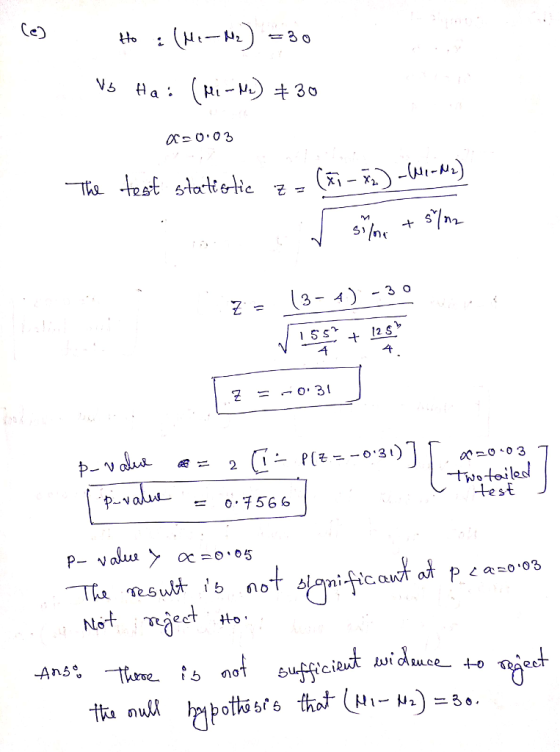 (e) H₀ : (μ₁−μ₂) =30
Vs Ha : (μ₁−μ₂) ≠ 30
α=0.03
The test statistic z = (x̄₁−x̄₂)−(μ₁−μ₂) / √(s₁²/n₁ + s²/n₂)
Z = (3−4) −30 / √(155²/4 + 125²/4)
Z = −0.31
p-value = 2 [1− P(Z=−0.31)] [α=0.03 Two tailed test]
p-value = 0.7566
p- value > α=0.05
The result is not significant at p<α=0.03
Not reject H₀.
Ans: There is not sufficient evidence to reject
the null hypothesis that (μ₁−μ₂) =30.